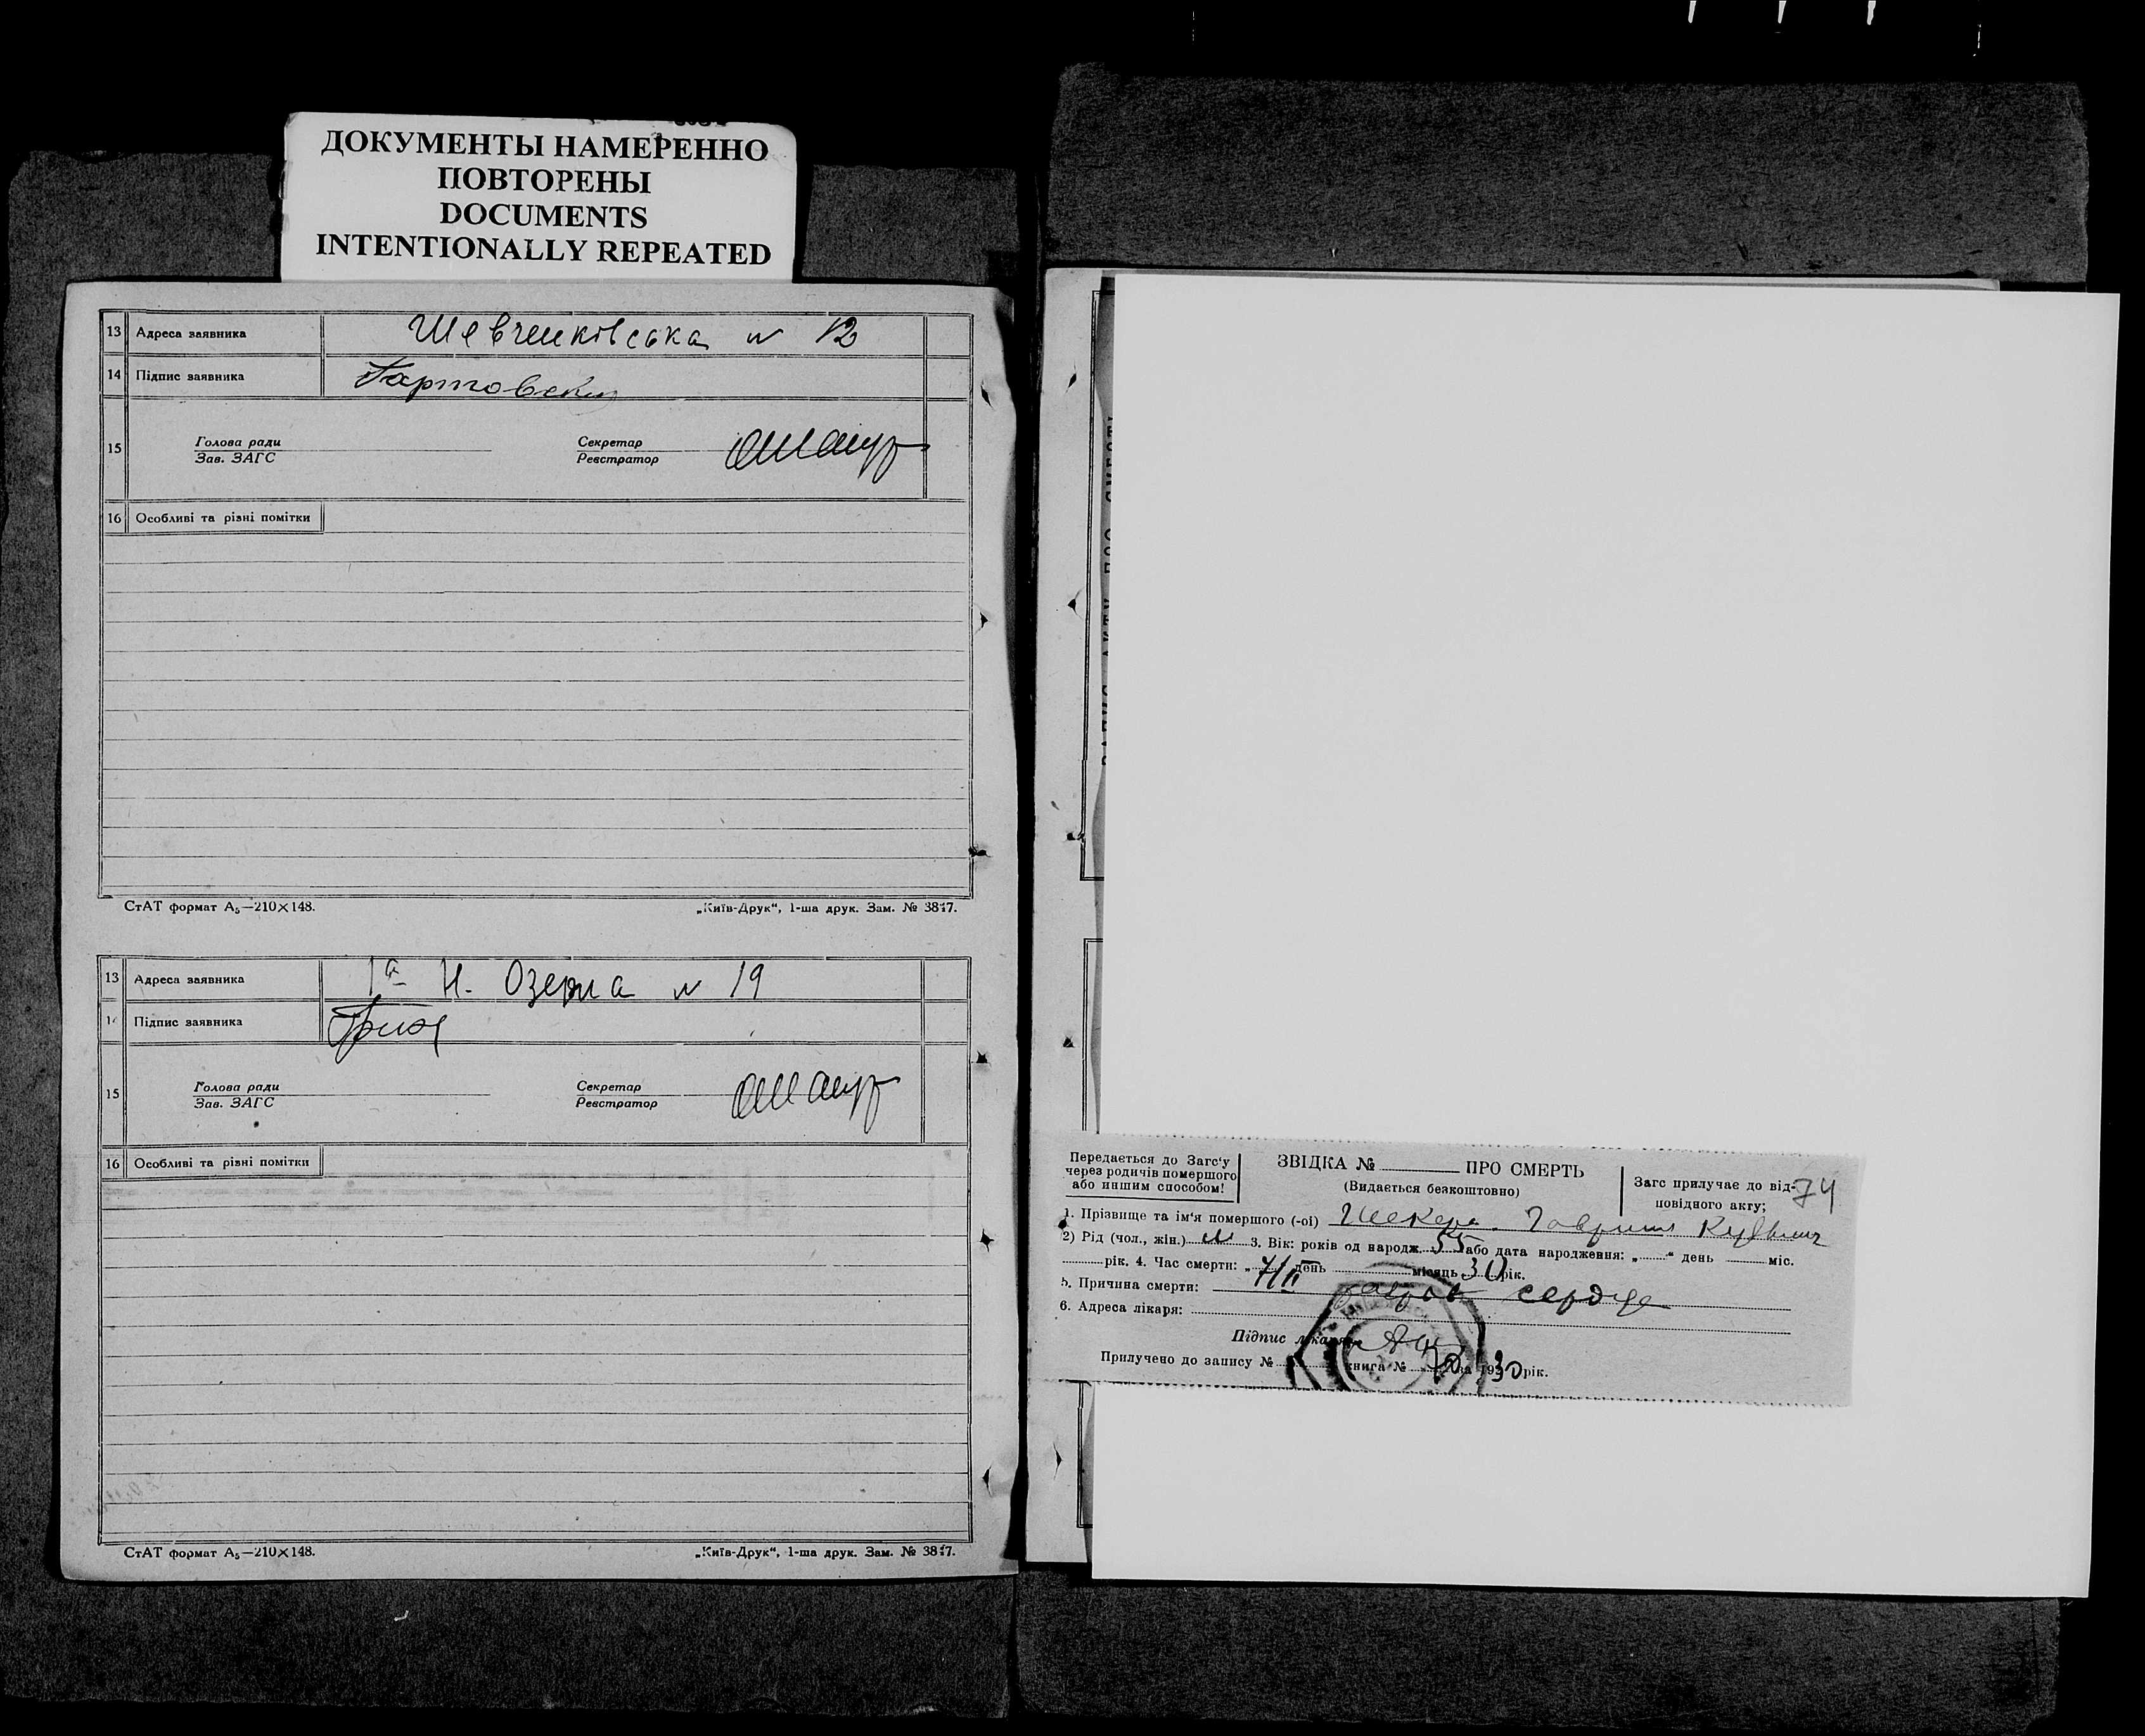 ДОКУМЕНТЫ НАМЕРЕННО
ПОВТОРЕНЫ
DOCUMENTS
INTENTIONALLY REPEATED
13 Адреса заявника Шевченківська № 12
14 Підпис заявника
15 Голова ради Секретар
Зав. ЗАГС Реєстратор
16 Особливі та різні помітки
СтАТ формат А₅—210×148. „Київ-Друк“, 1-ша друк. Зам. № 3847.
13 Адреса заявника 1ª Н. Озерна № 19
14 Підпис заявника
15 Голова ради Секретар
Зав. ЗАГС Реєстратор
16 Особливі та різні помітки
СтАТ формат А₅—210×148. „Київ-Друк“, 1-ша друк. Зам. № 3847.
Передається до Загс'у
через родичів помершого
або иншим способом!
ЗВІДКА № ПРО СМЕРТЬ
(Видається безкоштовно)
Загс прилучає до від-
повідного акту;
74
1. Прізвище та ім'я помершого (-ої) Шекера
2) Рід (чол., жін.) м 3. Вік: років од народж. 55 або дата народження: „ “ день міс.
рік. 4. Час смерти: „ 7/II день місяць 30 рік.
5. Причина смерти: сердца
6. Адреса лікаря:
Підпис лікаря
Прилучено до запису № книга № за 1930 рік.